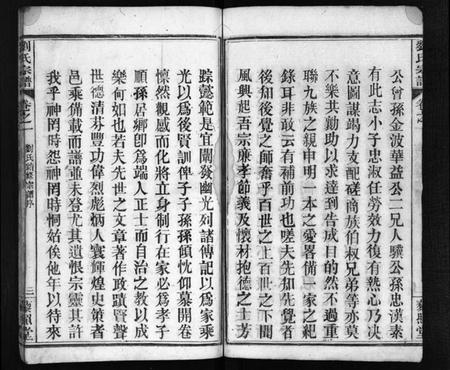 公曾孫金波華益公二兄人驥公孫忠漢素
有此志小子忠淑任勞效力復有熱心乃决
意圖謀竭力支配磋商族伯叔兄弟等亦莫
不樂共勷助以求達到告成目的然不過重
聯九族之親申明一本之愛畧備一家之紀
錄耳非敢云有補前功也嗟夫先知先覺者
後知後覺之師奮乎百世之上百世之下聞
風興起吾宗廉孝節義及懷材抱德之士芳
踪懿範是宜闡發幽光列諸傳記以爲家乘
光以爲後賢訓俾子子孫孫傾忱仰慕開卷
懷然觀感而化將立身制行在家必爲孝子
順孫居鄉卽爲端人正士而自治之教以成
樂何如也若夫先世之文章著作政蹟聲
世德清芬豐功偉烈彪炳人寰輝煌史策者
邑乘備載而譜並未登尤其遺恨宗靈其許
我乎神罔時怨神罔時恫姑俟他年以待來
劉氏宗譜
卷之一
劉氏 宗譜序
三
藜照堂